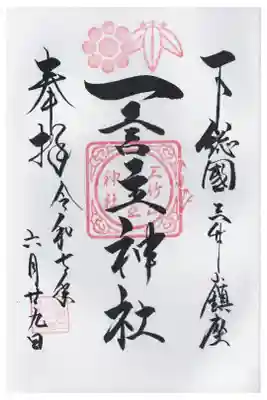 下総國三竹山鎮座
一言主神社
奉拝 令和七年
六月廿九日